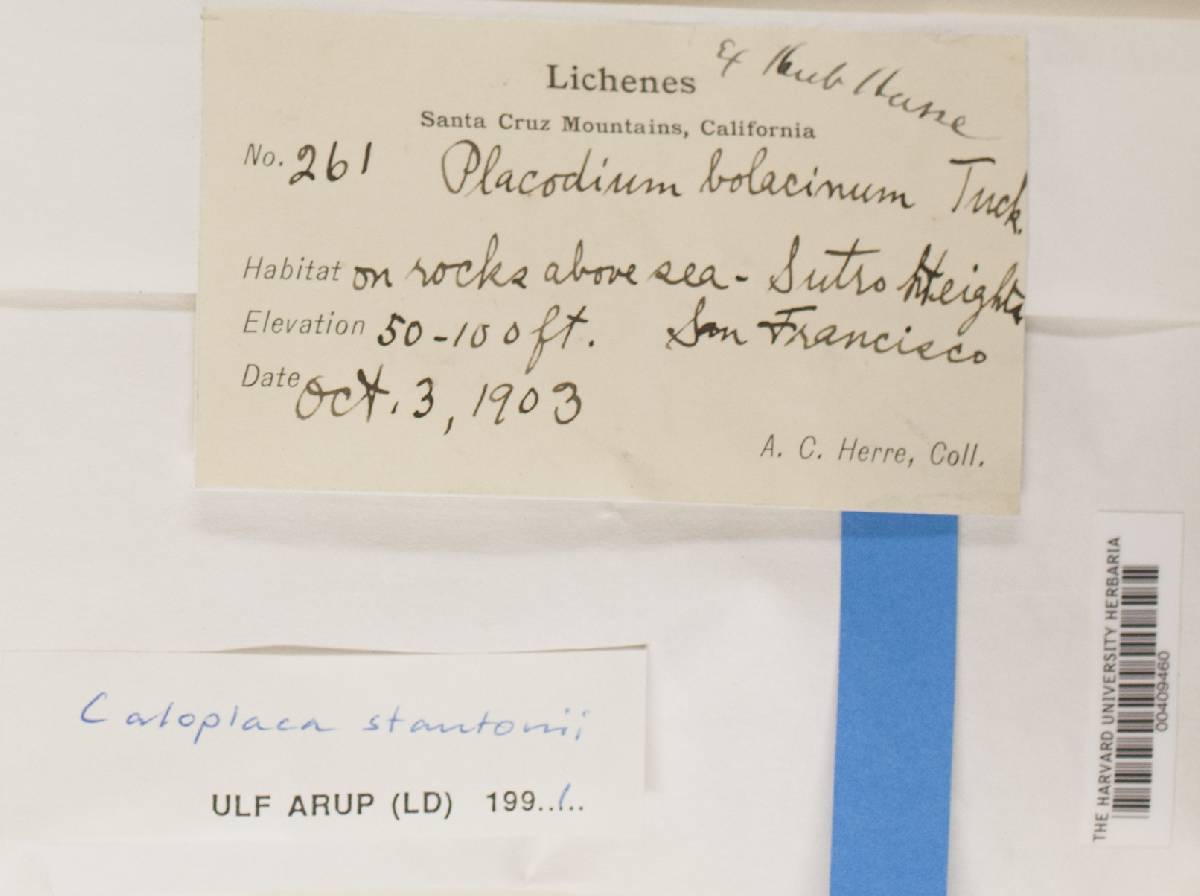 Ex Herb Hasse
Lichenes
Santa Cruz Mountains, California
No. 261 Placodium bolacinum Tuck.
Habitat on rocks above sea - Sutro Heights
Elevation 50-100 ft. San Francisco
Date Oct. 3, 1903
A. C. Herre, Coll.
Caloplaca stantonii
ULF ARUP (LD) 199..1..
THE HARVARD UNIVERSITY HERBARIA
00409460